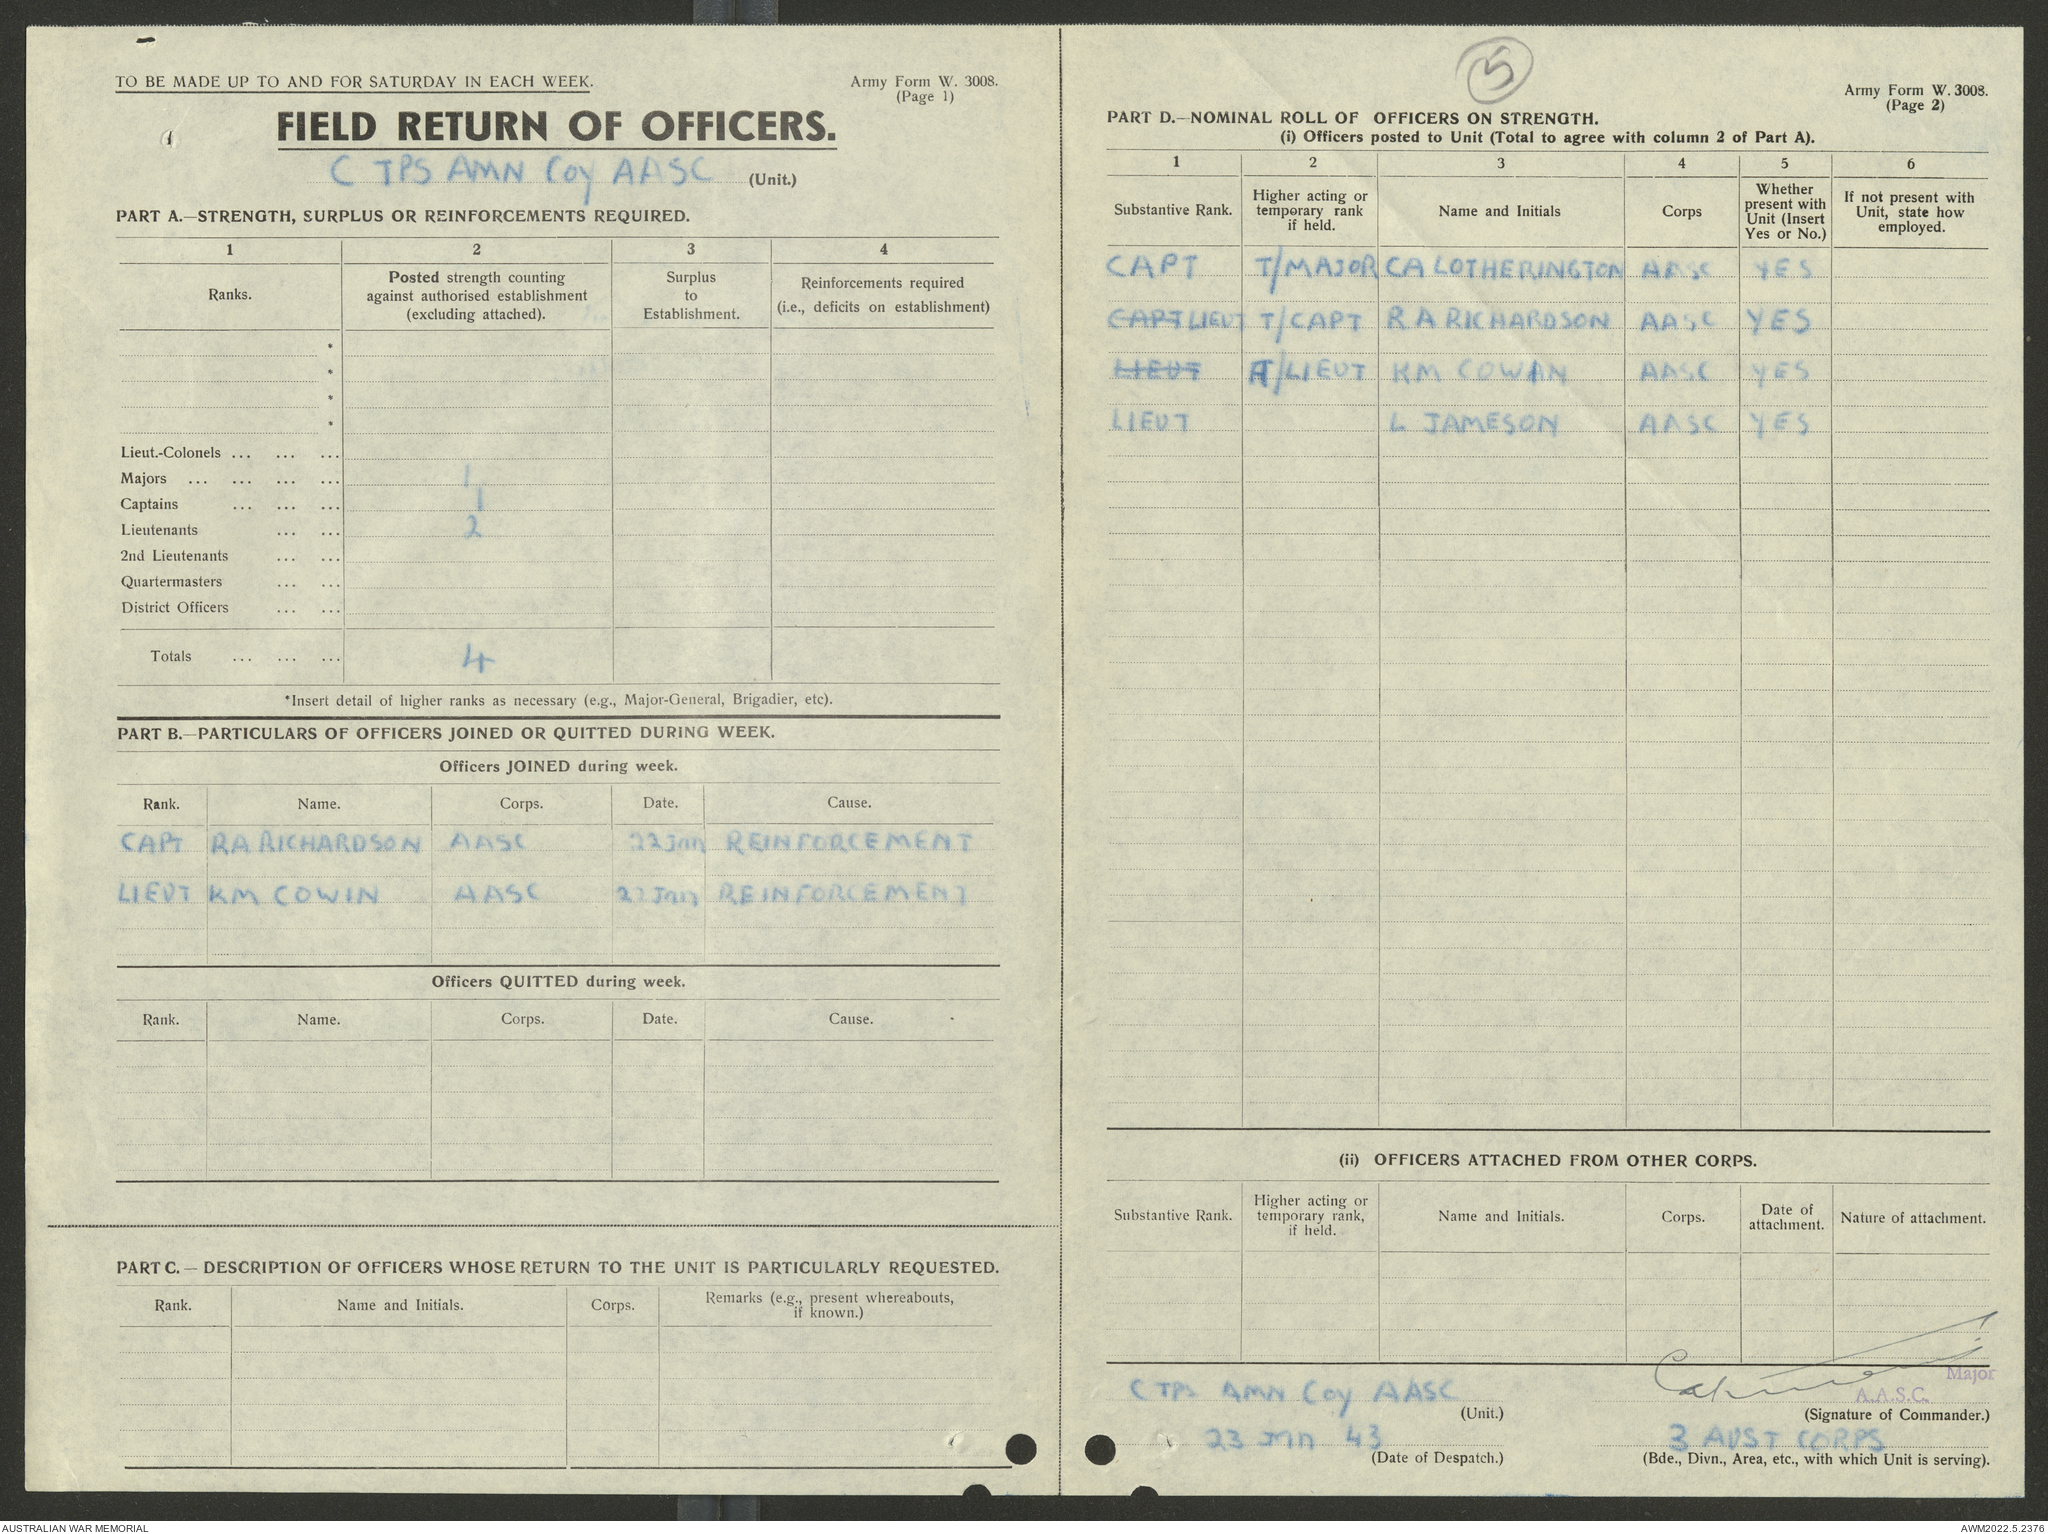 TO BE MADE UP TO AND FOR SATURDAY IN EACH WEEK.
Army Form W. 3008.
(Page 1)
FIELD RETURN OF OFFICERS.
C TPS AMN Coy AASC (Unit.)
PART A.—STRENGTH, SURPLUS OR REINFORCEMENTS REQUIRED.
1 2 3 4
Ranks. Posted strength counting against authorised establishment (excluding attached). Surplus to Establishment. Reinforcements required (i.e., deficits on establishment)
*
*
*
*
Lieut.-Colonels ... ... ...
Majors ... ... ... ... 1
Captains ... ... ... 1
Lieutenants ... ... 2
2nd Lieutenants ... ...
Quartermasters ... ...
District Officers ... ...
Totals ... ... ... 4
*Insert detail of higher ranks as necessary (e.g., Major-General, Brigadier, etc).
PART B.—PARTICULARS OF OFFICERS JOINED OR QUITTED DURING WEEK.
Officers JOINED during week.
Rank. Name. Corps. Date. Cause.
CAPT RA RICHARDSON AASC 22 Jan REINFORCEMENT
LIEUT KM COWIN AASC 22 Jan REINFORCEMENT
Officers QUITTED during week.
Rank. Name. Corps. Date. Cause.
PART C. — DESCRIPTION OF OFFICERS WHOSE RETURN TO THE UNIT IS PARTICULARLY REQUESTED.
Rank. Name and Initials. Corps. Remarks (e.g., present whereabouts, if known.)
5
Army Form W. 3008.
(Page 2)
PART D.—NOMINAL ROLL OF OFFICERS ON STRENGTH.
(i) Officers posted to Unit (Total to agree with column 2 of Part A).
1 2 3 4 5 6
Substantive Rank. Higher acting or temporary rank if held. Name and Initials Corps Whether present with Unit (Insert Yes or No.) If not present with Unit, state how employed.
CAPT T/MAJOR CA LOTHERINGTON AASC YES
CAPT LIEUT T/CAPT R A RICHARDSON AASC YES
LIEUT T/LIEUT KM COWAN AASC YES
LIEUT L JAMESON AASC YES
(ii) OFFICERS ATTACHED FROM OTHER CORPS.
Substantive Rank. Higher acting or temporary rank, if held. Name and Initials. Corps. Date of attachment. Nature of attachment.
Major
A.A.S.C.
C TPS AMN Coy AASC
(Unit.) (Signature of Commander.)
23 Jan 43 3 AUST CORPS
(Date of Despatch.) (Bde., Divn., Area, etc., with which Unit is serving).
AUSTRALIAN WAR MEMORIAL AWM2022.5.2376